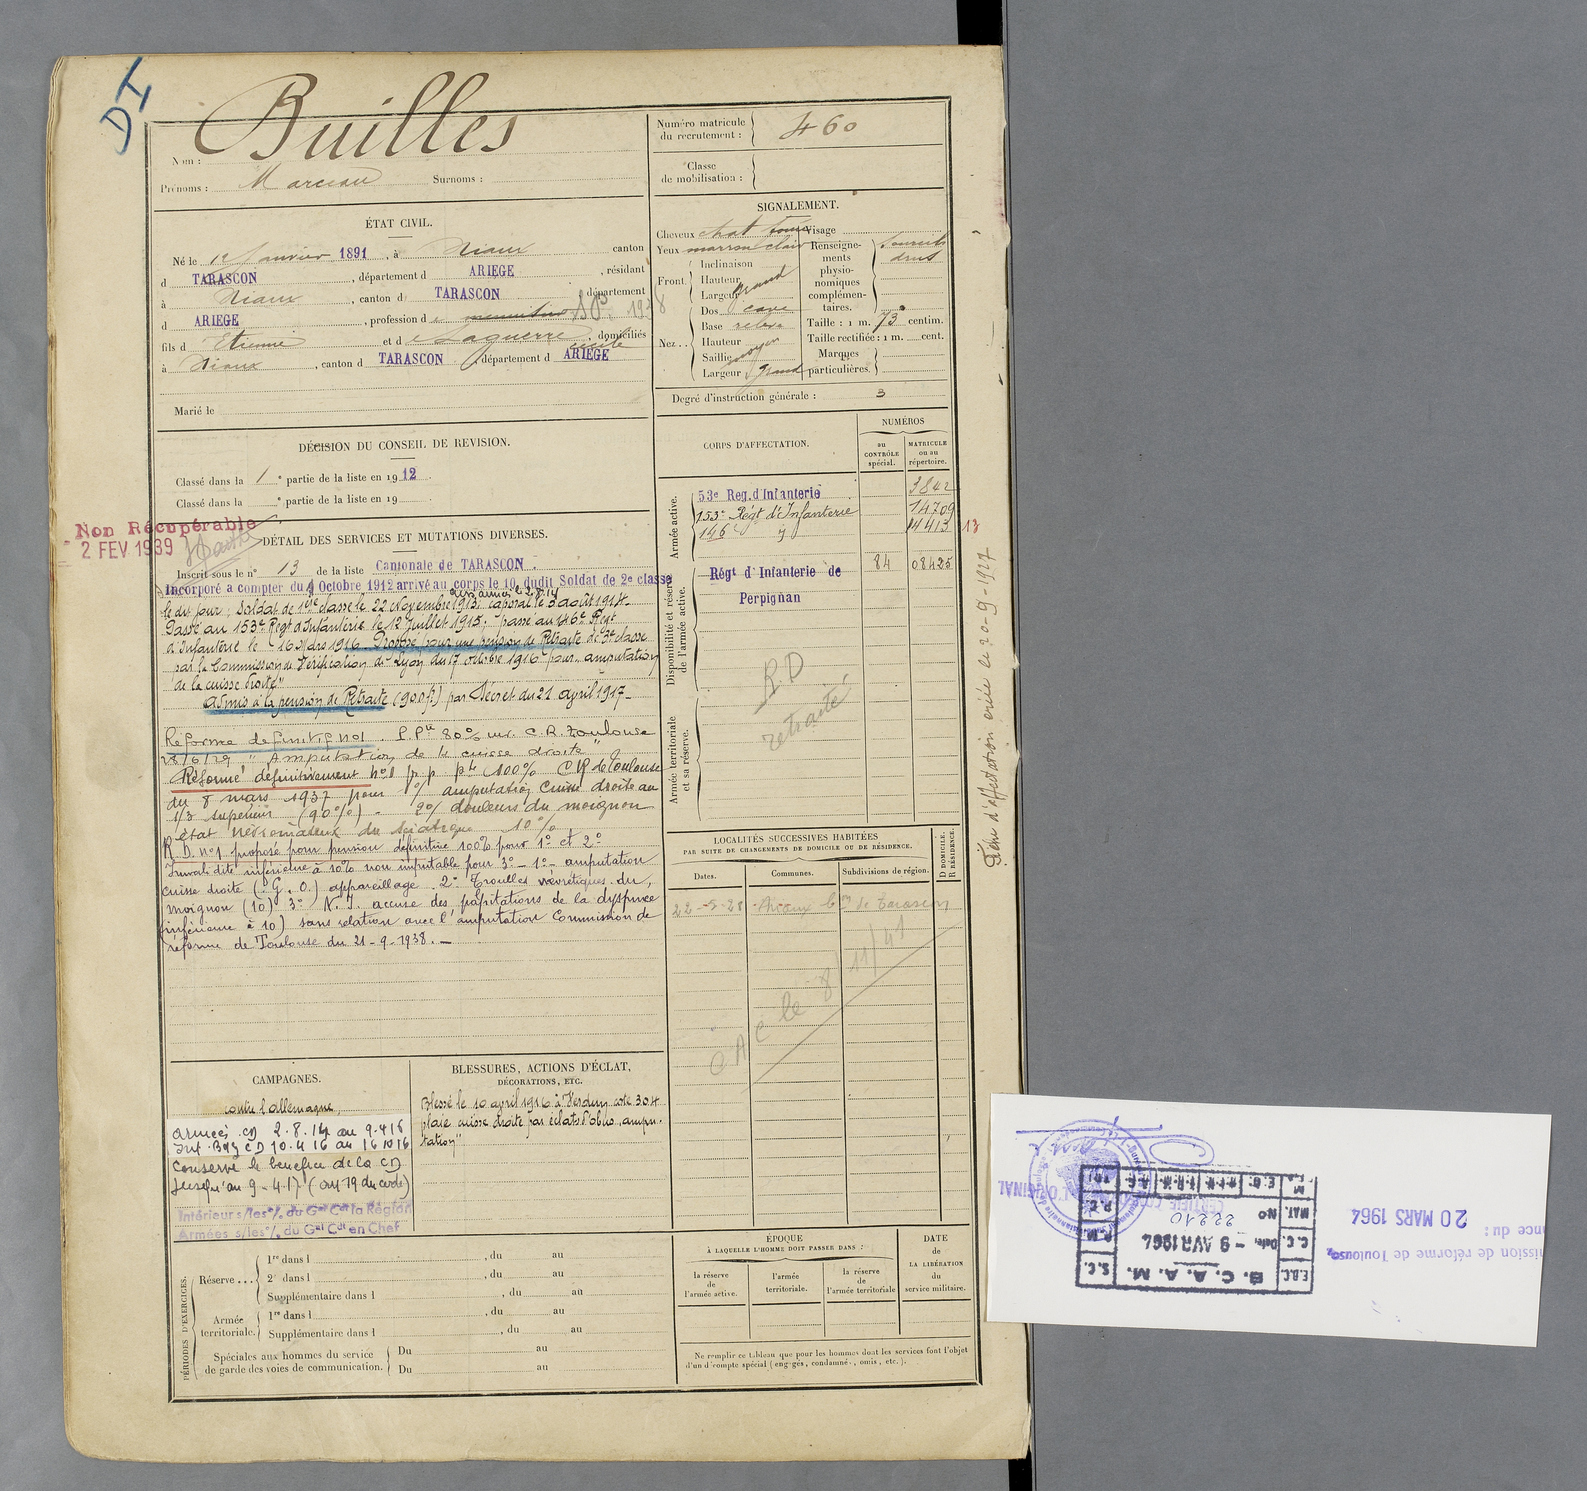 DI
Nom : Builles
Prénoms : Marceau Surnoms :
Numéro matricule du recrutement : 460
Classe de mobilisation :
ÉTAT CIVIL.
Né le 12 Janvier 1891, à Niaux canton
d TARASCON, département d ARIEGE, résidant
à Niaux, canton d TARASCON, département
d ARIEGE, profession de menuisier SP. 1938
fils d Etienne et de Laguerre Cécile domiciliés
à Niaux, canton d TARASCON, département d ARIEGE
Marié le
SIGNALEMENT.
Cheveux chat foncé Visage
Yeux marron clair
Front. Inclinaison
Hauteur
Largeur grand
Nez... Dos cave
Base relevé
Hauteur
Saillie moyen
Largeur grand
Renseignements physionomiques complémentaires. Sourcils drus
Taille : 1 m. 73 centim.
Taille rectifiée : 1 m. cent.
Marques particulières.
Degré d'instruction générale : 3
DÉCISION DU CONSEIL DE REVISION.
Classé dans la 1e partie de la liste en 1912.
Classé dans la e partie de la liste en 19 .
Non Récupérable
2 FEV 1939
DÉTAIL DES SERVICES ET MUTATIONS DIVERSES.
Inscrit sous le n° 13 de la liste Cantonale de TARASCON.
Incorporé a compter du 9 Octobre 1912 arrivé au corps le 10 dudit Soldat de 2e classe
aux armées le 2.8.14
le dit jour ; Soldat de 1ère classe le 22 Novembre 1913; caporal le 5 août 1914.
Passé au 153e Regt d'Infanterie le 12 Juillet 1915. passé au 146e Regt
d'Infanterie le 16 Mars 1916. Proposé pour une pension de Retraite de 3e classe
par la Commission de Vérification de Lyon du 17 octobre 1916 pour "amputation
de la cuisse droite"
admis à la pension de Retraite (900 f.) par Décret du 21 avril 1917-
Réforme définitive n°1. P.Pte 80% inv. C.R. Toulouse
28/6/29 "Amputation de la cuisse droite"
Réformé définitivement n°1 p.p. pte 100% CR de Toulouse
du 8 mars 1937 pour 1°/ amputation cuisse droite au
1/3 supérieur (90%) - 2°/ douleurs du moignon
état névromateux du sciatique 10%
R.D. n°1 proposé pour pension définitive 100% pour 1° et 2°
Invalidité inférieure à 10% non imputable pour 3° - 1° - amputation
cuisse droite (P.G.O.) appareillage. 2° Troubles névritiques du
moignon (10) 3° N.I. accuse des palpitations de la dyspnée
(inférieure à 10) sans relation avec l'amputation Commission de
réforme de Toulouse du 21-9-1938.-
CORPS D'AFFECTATION.
NUMÉROS
au CONTRÔLE spécial.
MATRICULE ou au répertoire.
Armée active.
53e Reg. d'Infanterie 3842
153e Régt d'Infanterie 14709
146e 14413 13
Disponibilité et réserve de l'armée active.
Régt d'Infanterie de Perpignan 84 08425
RD
retraité
Armée territoriale et sa réserve.
Fiche d'affectation créée le 20-9-1927
LOCALITÉS SUCCESSIVES HABITÉES
PAR SUITE DE CHANGEMENTS DE DOMICILE OU DE RÉSIDENCE.
D DOMICILE. R RÉSIDENCE.
Dates. Communes. Subdivisions de région.
22-5-28 Niaux Con de Tarascon
CAC le 8/11/41
CAMPAGNES.
contre l'allemagne,
Armées CD 2.8.14 au 9.4 16
Int. Bgz CD 10.4 16 au 16 10 16
Conserve le bénéfice de la CD
jusqu'au 9-4-17 (art 19 du code)
Intérieur s/les o/. du Gal Cdt la Région
Armées s/les o/. du Gal Cdt en Chef
BLESSURES, ACTIONS D'ÉCLAT,
DÉCORATIONS, ETC.
Blessé le 10 avril 1916 à Verdun cote 304
plaie cuisse droite par éclats d'obus "ampu-
tation"
PÉRIODES D'EXERCICES.
Réserve... 1re dans l , du au
2e dans l , du au
Supplémentaire dans l , du au
Armée territoriale. 1re dans l , du au
Supplémentaire dans l , du au
Spéciales aux hommes du service de garde des voies de communication. Du au
Du au
ÉPOQUE
À LAQUELLE L'HOMME DOIT PASSER DANS :
la réserve de l'armée active.
l'armée territoriale.
la réserve de l'armée territoriale
DATE de LA LIBÉRATION du service militaire.
Ne remplir ce tableau que pour les hommes dont les services font l'objet
d'un décompte spécial (engagés, condamnés, omis, etc.).
mission de réforme de Toulouse,
ance du : 20 MARS 1964
B.C.A.A.M.
E.B.C. S.C.
C.C. Date: - 9 AVR 1964
MAT. N° 22210
CERTIFIÉ CONFORME A L'ORIGINAL